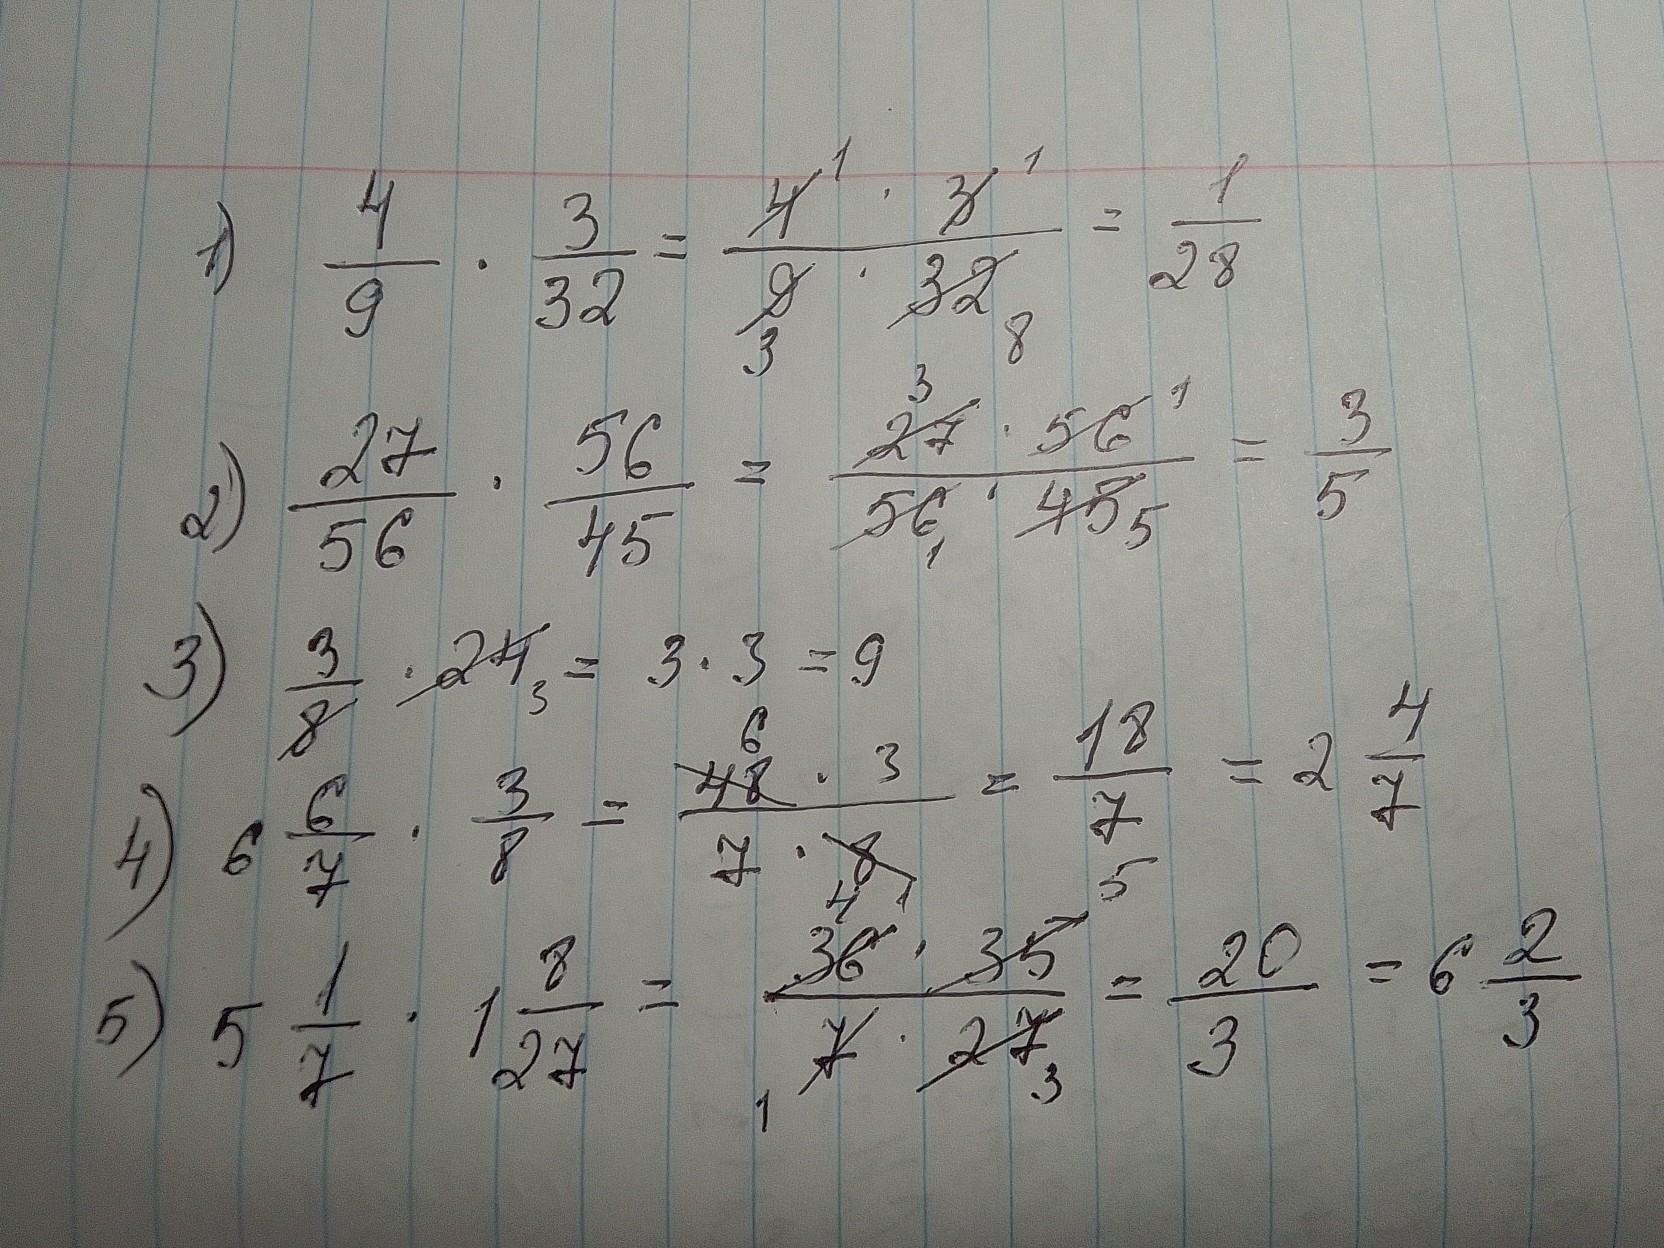 1) 4/9 · 3/32 = 4 1 · 3 1 / 9 3 · 32 8 = 1/28
2) 27/56 · 56/45 = 27 3 · 56 1 / 56 1 · 45 5 = 3/5
3) 3/8 · 24 3 = 3 · 3 = 9
4) 6 6/7 · 3/8 = 48 6 · 3 / 7 · 8 1 = 18/7 = 2 4/7
5) 5 1/7 · 1 8/27 = 36 4 · 35 5 / 7 1 · 27 3 = 20/3 = 6 2/3